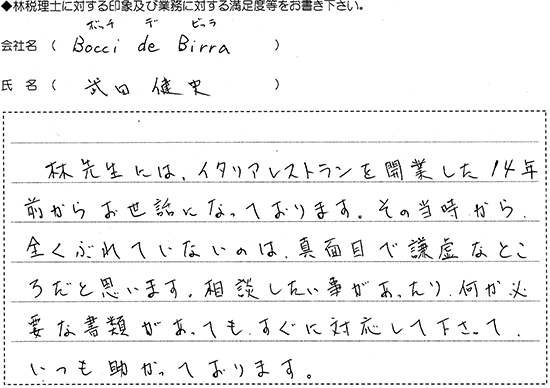 ◆林税理士に対する印象及び業務に対する満足度等をお書き下さい。
ボッチ デ ビッラ
会社名 ( Bocci de Birra )
氏 名 ( 武田 健史 )
林先生には、イタリアレストランを開業した14年
前からお世話になっております。その当時から、
全くぶれていないのは、真面目で謙虚なとこ
ろだと思います。相談したい事があったり、何か必
要な書類があっても、すぐに対応して下さって、
いつも助かっております。